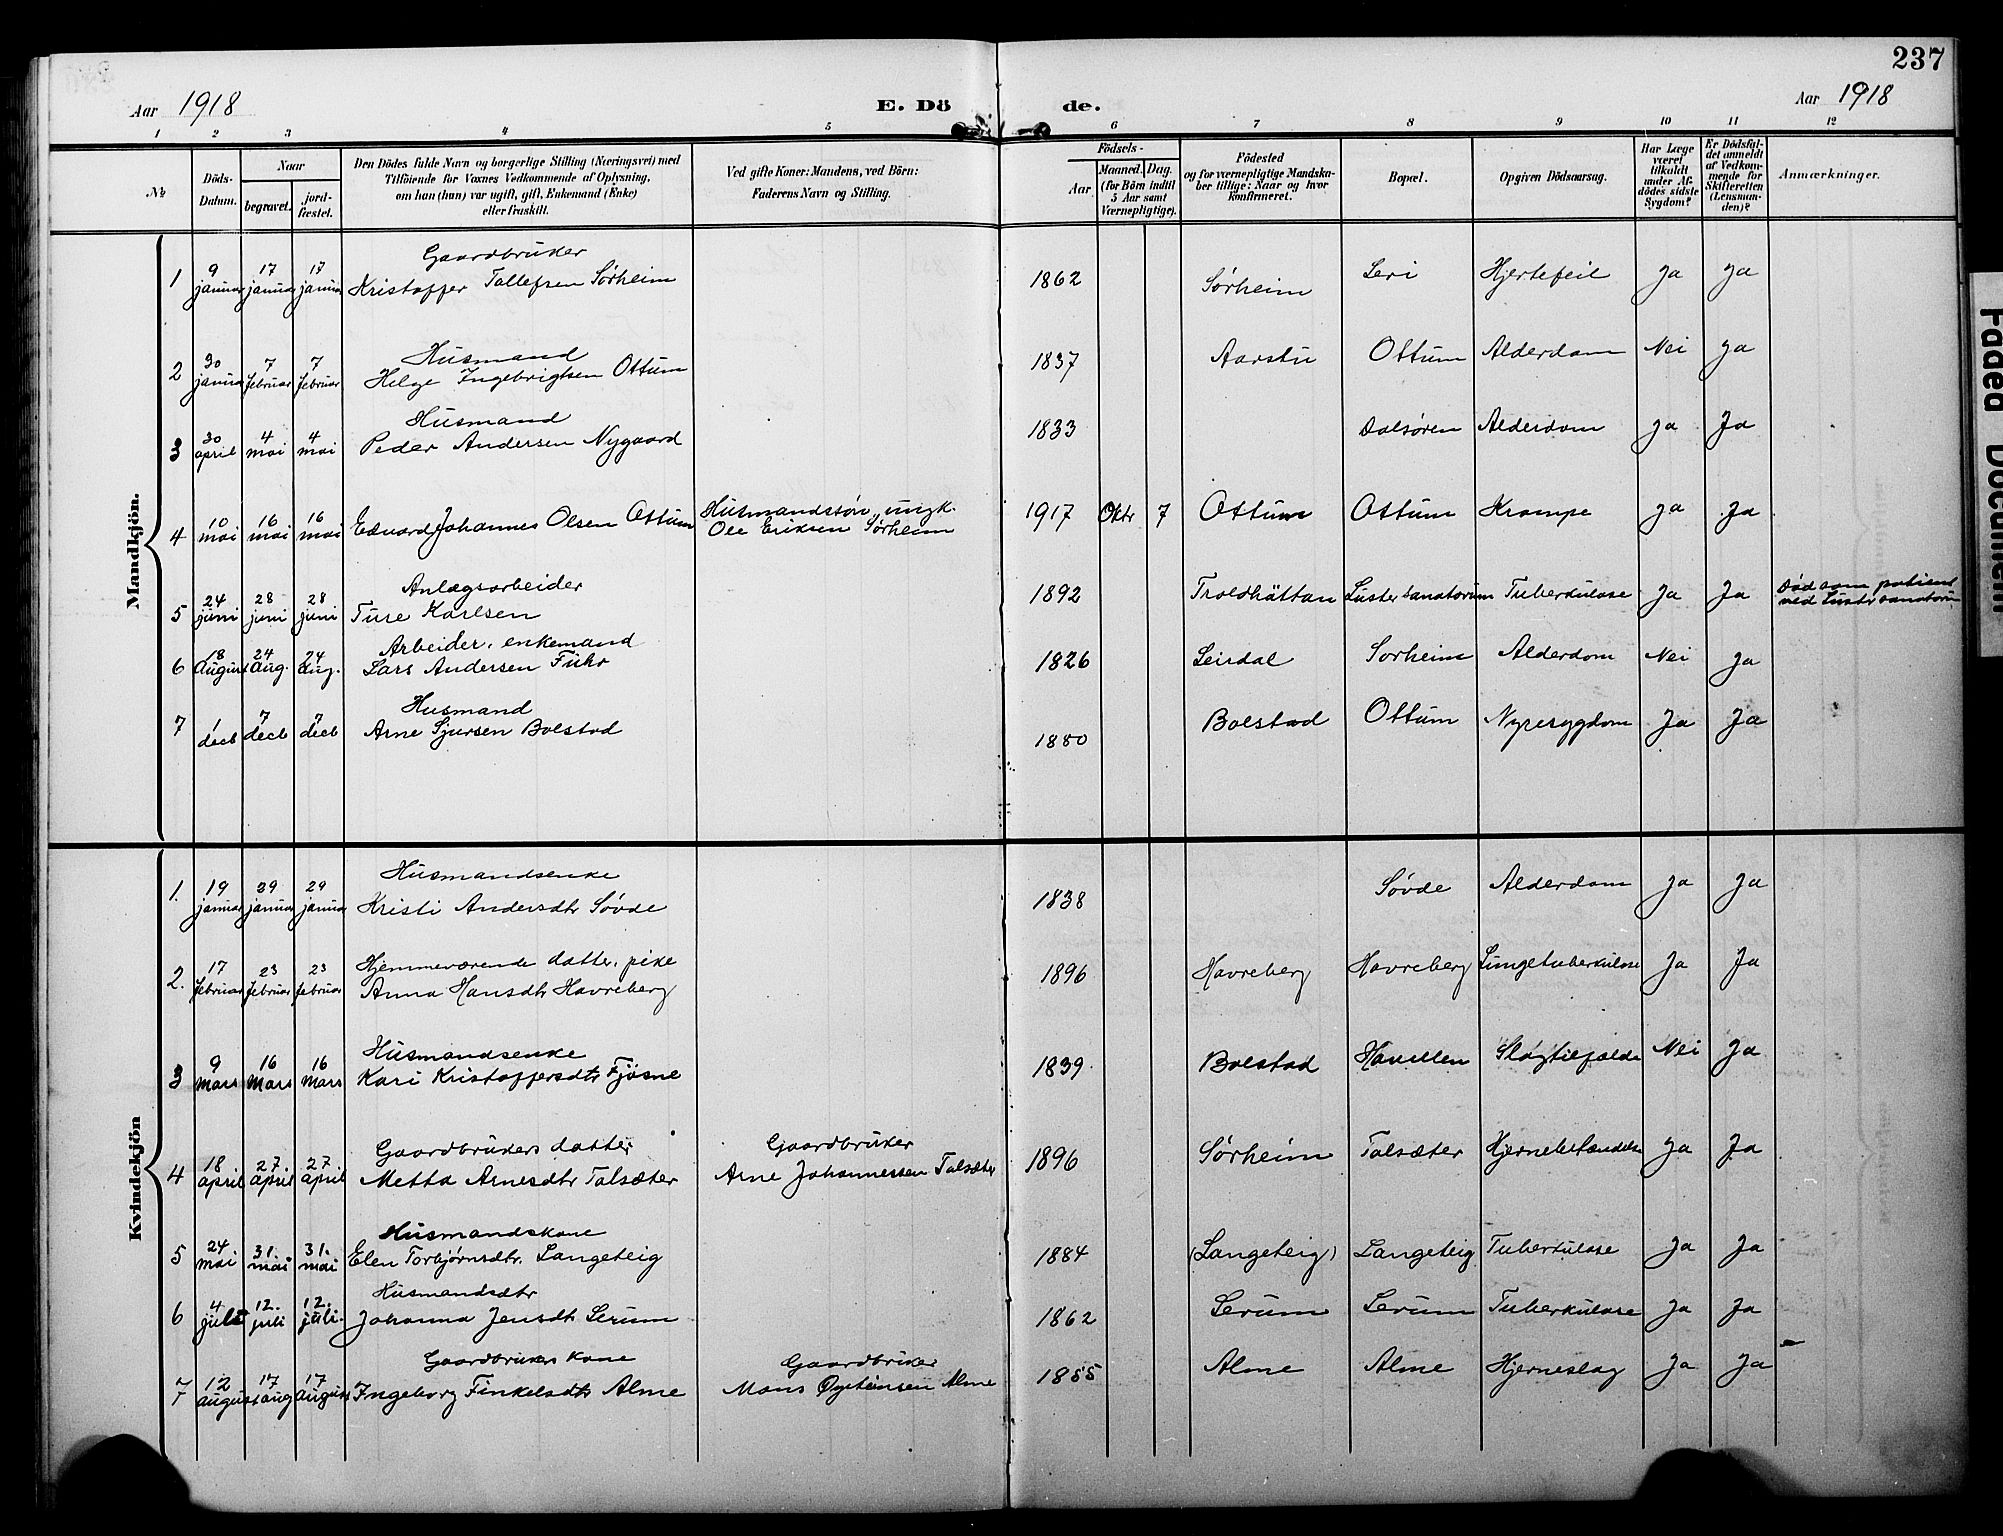 237
Aar 1918
E. Dö de.
Aar 1918
1 2 3 4 5 6 7 8 9 10 11 12
№
Döds-Datum.
Naar
begravet.
jord-fæstet.
Den Dödes fulde Navn og borgerlige Stilling (Næringsvei) med
Tilföiende for Voxnes Vedkommende af Oplysning,
om han (hun) var ugift, gift, Enkemand (Enke)
eller fraskilt.
Ved gifte Koner: Mandens, ved Börn:
Faderens Navn og Stilling.
Födsels-
Aar
Maaned. Dag.
(for Börn indtil
5 Aar samt
Værnepligtige).
Födested
og for værnepligtige Mandska-
ber tillige: Naar og hvor
konfirmeret.
Bopæl.
Opgiven Dödsaarsag.
Har Læge
været
tilkaldt
under Af-
dödes sidste
Sygdom?
Er Dödsfal-
det anmeldt
af Vedkom-
mende for
Skifteretten
(Lensman-
den)?
Anmærkninger.
Mandkjön.
Gaardbruker
1 9 januar 17 januar 17 januar Kristoffer Tollefsen Sørheim 1862 Sørheim Leri Hjertefeil Ja Ja
Husmand
2 30 januar 7 februar 7 februar Helge Ingebrigtsen Ottum 1837 Aarstu Ottum Alderdom Nei Ja
Husmand
3 30 april 4 mai 4 mai Peder Andersen Nygaard 1833 Dalsøren Alderdom Ja Ja
Husmandssøn, ungk.
4 10 mai 16 mai 16 mai Edvard Johannes Olsen Ottum Ole Eriksen Sørheim 1917 Oktr 7 Ottum Ottum Krampe Ja Ja
Anlægsarbeider
5 24 juni 28 juni 28 juni Ture Karlsen 1892 Troldhättan Luster sanatorium Tuberkulose Ja Ja Død som patient
ved Luster sanatorium
Arbeider, enkemand
6 18 August 24 Aug. 24 Aug. Lars Andersen Fuhr 1826 Leirdal Sørheim Alderdom Nei Ja
Husmand
7 1 decb 7 decb 7 decb Arne Sjursen Bolstad 1880 Bolstad Ottum Nyresygdom Ja Ja
Kvindekjön
Husmandsenke
1. 19 januar 29 januar 29 januar Kristi Andersdtr Søvde 1838 Søvde Alderdom Ja Ja
Hjemmeværende datter, pike
2. 17 februar 23 februar 23 februar Anna Hansdtr Havreberg 1896 Havreberg Havreberg Lungetuberkulose Ja Ja
Husmandsenke
3 9 mars 16 mars 16 mars Kari Kristoffersdtr Fjøsne 1839 Bolstad Slagtilfælde Nei Ja
Gaardbrukers datter Gaardbruker
4 18 april 27 april 27 april Metta Arnesdtr Talsæter Arne Johannessen Talsæter 1896 Sørheim Talsæter Hjernebetændelse Ja Ja
Husmandskone
5 24 mai 31. mai 31. mai Elen Torbjørnsdtr. Langeteig 1884 (Langeteig) Langeteig Tuberkulose Ja Ja
Husmandsdtr
6 4 juli 12. juli 12. juli. Johanna Jensdtr Lerum 1862 Lerum Lerum Tuberkulose Ja Ja
Gaardbrukers kone Gaardbruker
7 12 august 17 aug 17 august Ingeborg Finkelsdtr Alme Mons Øysteinsen Alme 1855 Alme Alme Hjerneslag Ja Ja
Faded Document